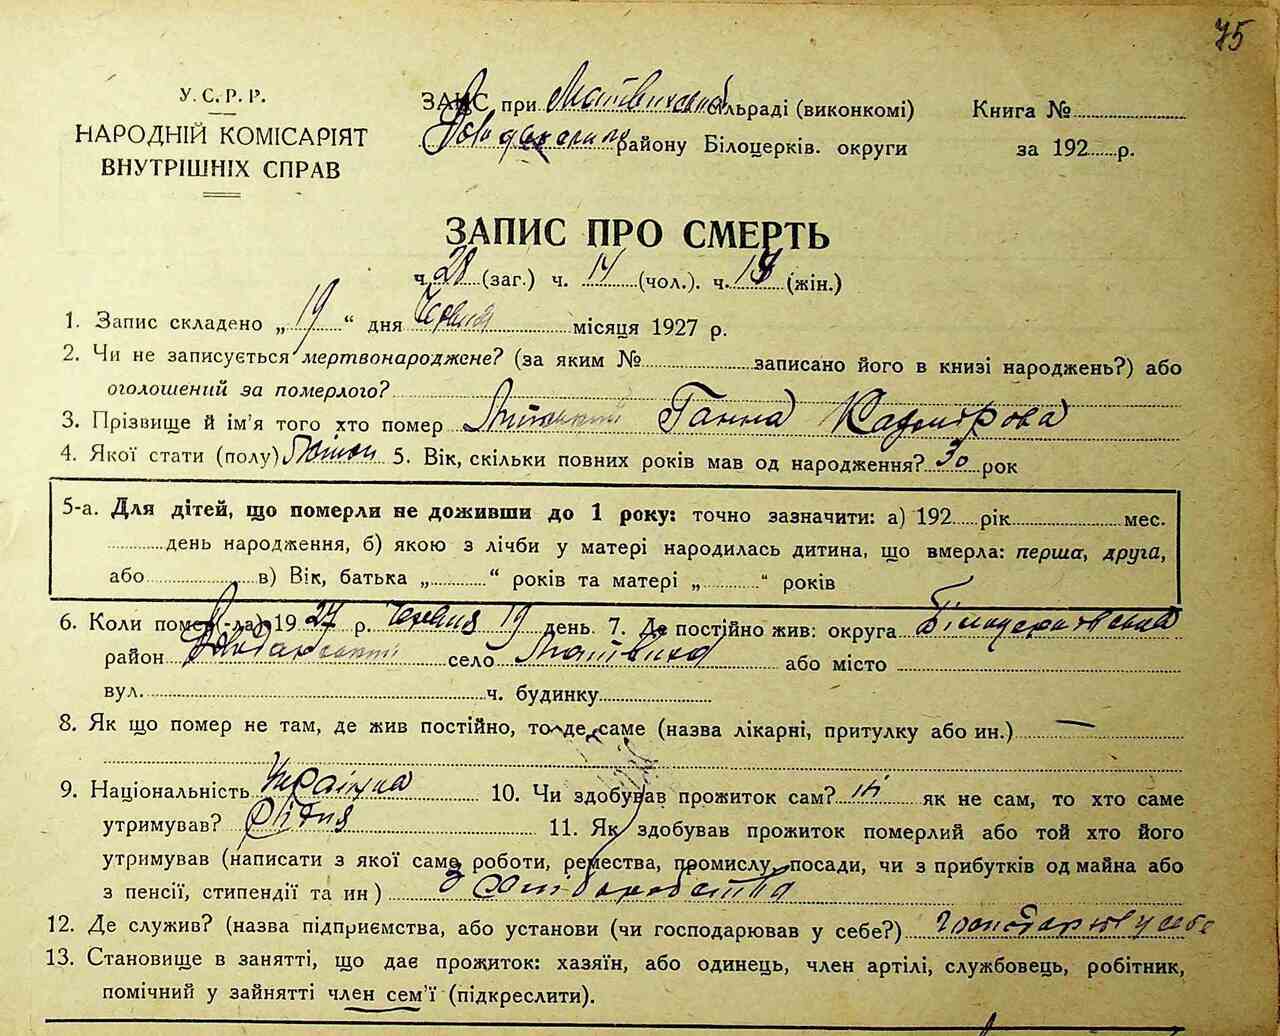 75
У. С. Р. Р.
НАРОДНІЙ КОМІСАРІЯТ
ВНУТРІШНІХ СПРАВ
ЗАПИС при Матвіихській сільраді (виконкомі)
району Білоцерків. округи
Книга №
за 192 р.
ЗАПИС ПРО СМЕРТЬ
ч. 28 (заг.) ч. 14 (чол.). ч. (жін.)
1. Запис складено „ 19 “ дня Червня місяця 1927 р.
2. Чи не записується мертвонароджене? (за яким № записано його в книзі народжень?) або
оголошений за померлого?
3. Прізвище й ім'я того хто помер Ганна Казімірова
4. Якої стати (полу) 5. Вік, скільки повних років мав од народження? 30 рок
5-а. Для дітей, що померли не доживши до 1 року: точно зазначити: а) 192 рік мес.
день народження, б) якою з лічби у матері народилась дитина, що вмерла: перша, друга,
або в) Вік, батька „ “ років та матері „ “ років
6. Коли помер(-ла) 1927 р. Червня 19 день 7. Де постійно жив: округа Білоцерківська
район село Матвіиха або місто
вул. ч. будинку
8. Як що помер не там, де жив постійно, то де саме (назва лікарні, притулку або ин.) —
9. Національність Українка 10. Чи здобував прожиток сам? ні як не сам, то хто саме
утримував? 11. Як здобував прожиток померлий або той хто його
утримував (написати з якої саме роботи, ремества, промислу, посади, чи з прибутків од майна або
з пенсії, стипендії та ин) З хліборобства
12. Де служив? (назва підприємства, або установи (чи господарював у себе?) господарював у себе
13. Становище в занятті, що дає прожиток: хазяїн, або одинець, член артілі, службовець, робітник,
помічний у зайнятті член сем'ї (підкреслити).